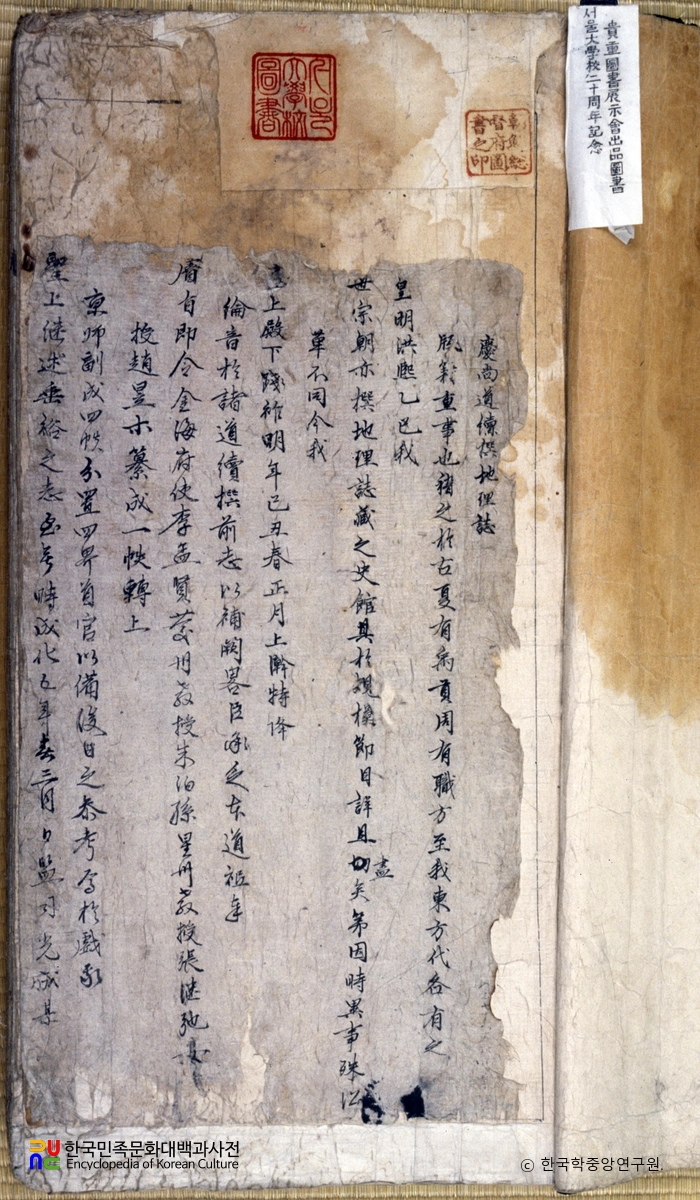 貴重圖書展示會出品圖書
서울大學校二十周年記念
朝鮮總
督府圖
書之印
서울
大學校
圖書
慶尚道續撰地理誌
重事也稽之於古夏有禹貢周有職方至我東方代各有之
皇明洪熙乙巳我
世宗朝亦撰地理誌藏之史館其於規模節目詳且切盡矣第因時異事殊沿
革不同今我
主上殿下踐祚明年己丑春正月上澣特降
綸音於諸道續撰前志以補闕畧臣承乏本道祗奉
睿旨即令金海府使李孟賢慶州教授朱伯孫星州教授張繼弛
授趙昱亦纂成一帙轉上
京師副成四帙分置四界首官以備後日之參考焉於戲我
聖上继述垂裕之志至矣時成化五年春三月日監司光城某
한국민족문화대백과사전
Encyclopedia of Korean Culture
© 한국학중앙연구원